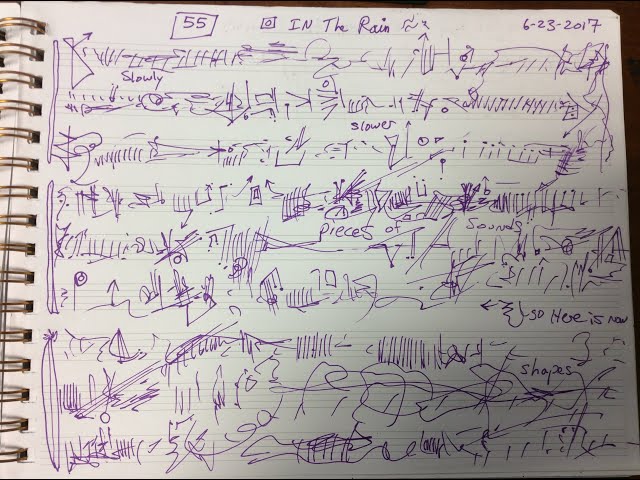 55 IN The Rain 6-23-2017
Slowly
slower
Pieces of Sounds
so Here is now
shapes